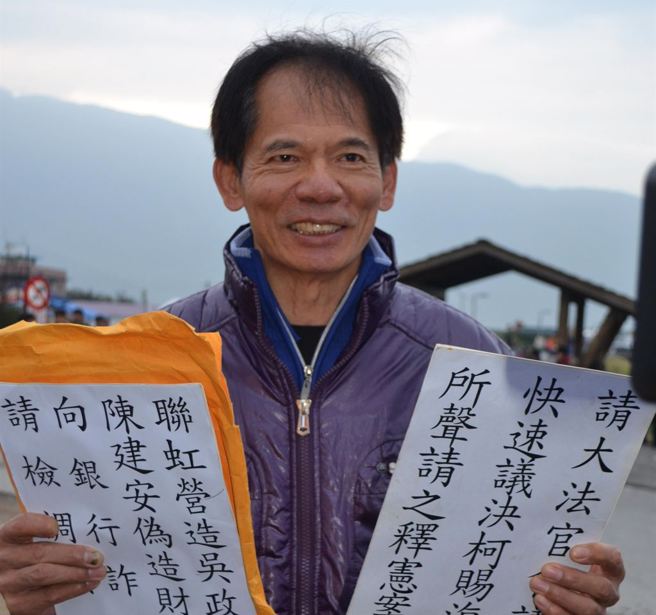 聯虹營造吳政
陳建安偽造財
向銀行詐
請檢調
請大法官
快速議決柯賜海
所聲請之釋憲案